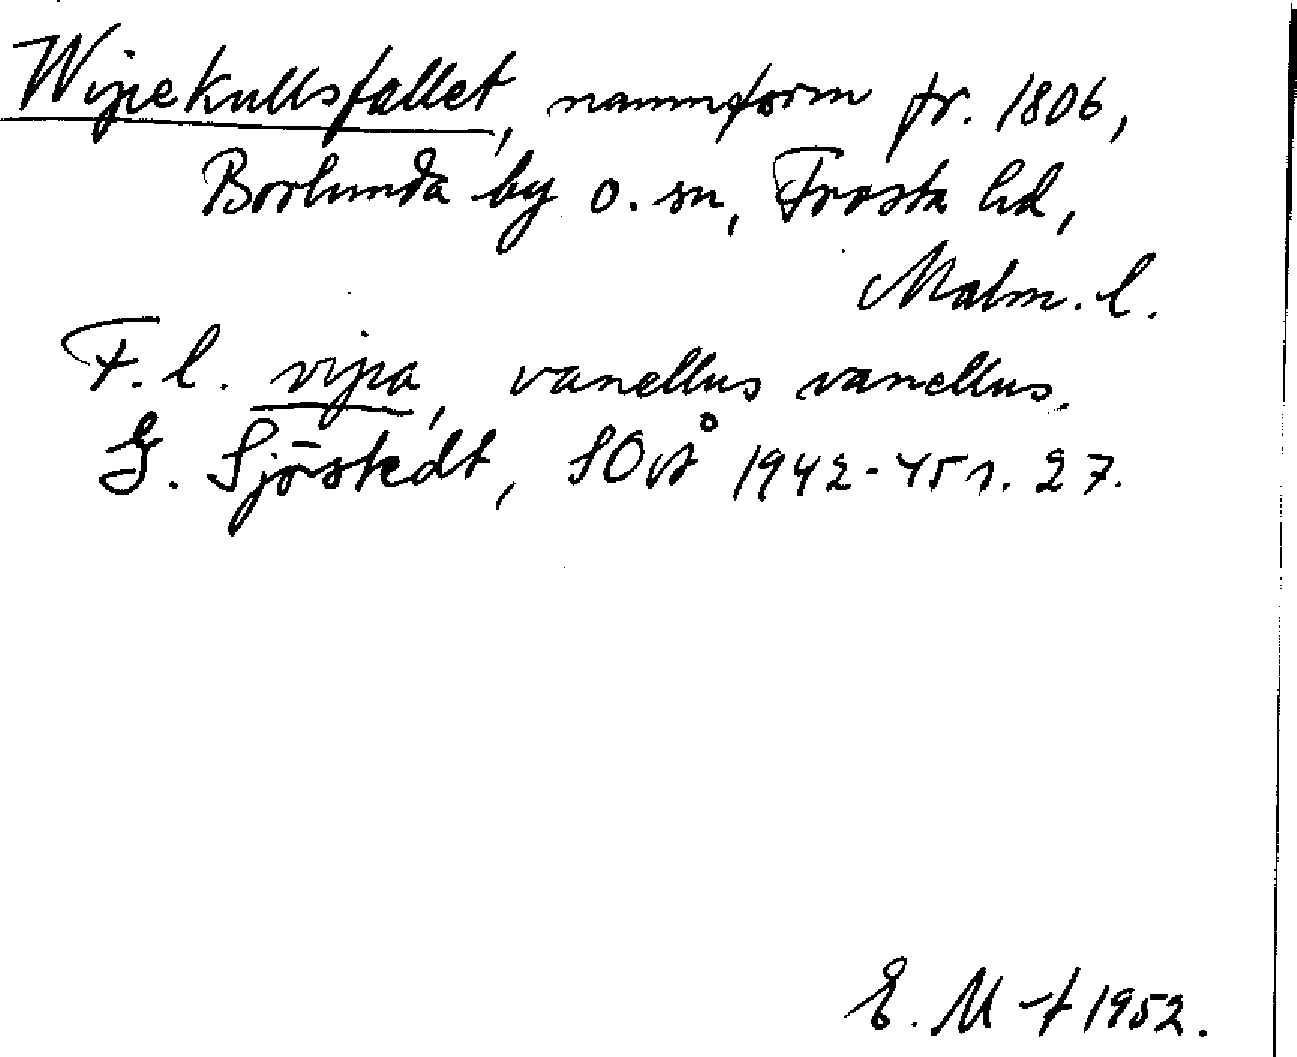 Wipekullsfallet, namnform fr. 1806,
Borlunda by o. sn, Frosta hd,
Malm. l.
F. l. vipa, vanellus vanellus.
G. Sjöstedt, SOÅ 1942-45 s. 27.
E. M-t 1952.